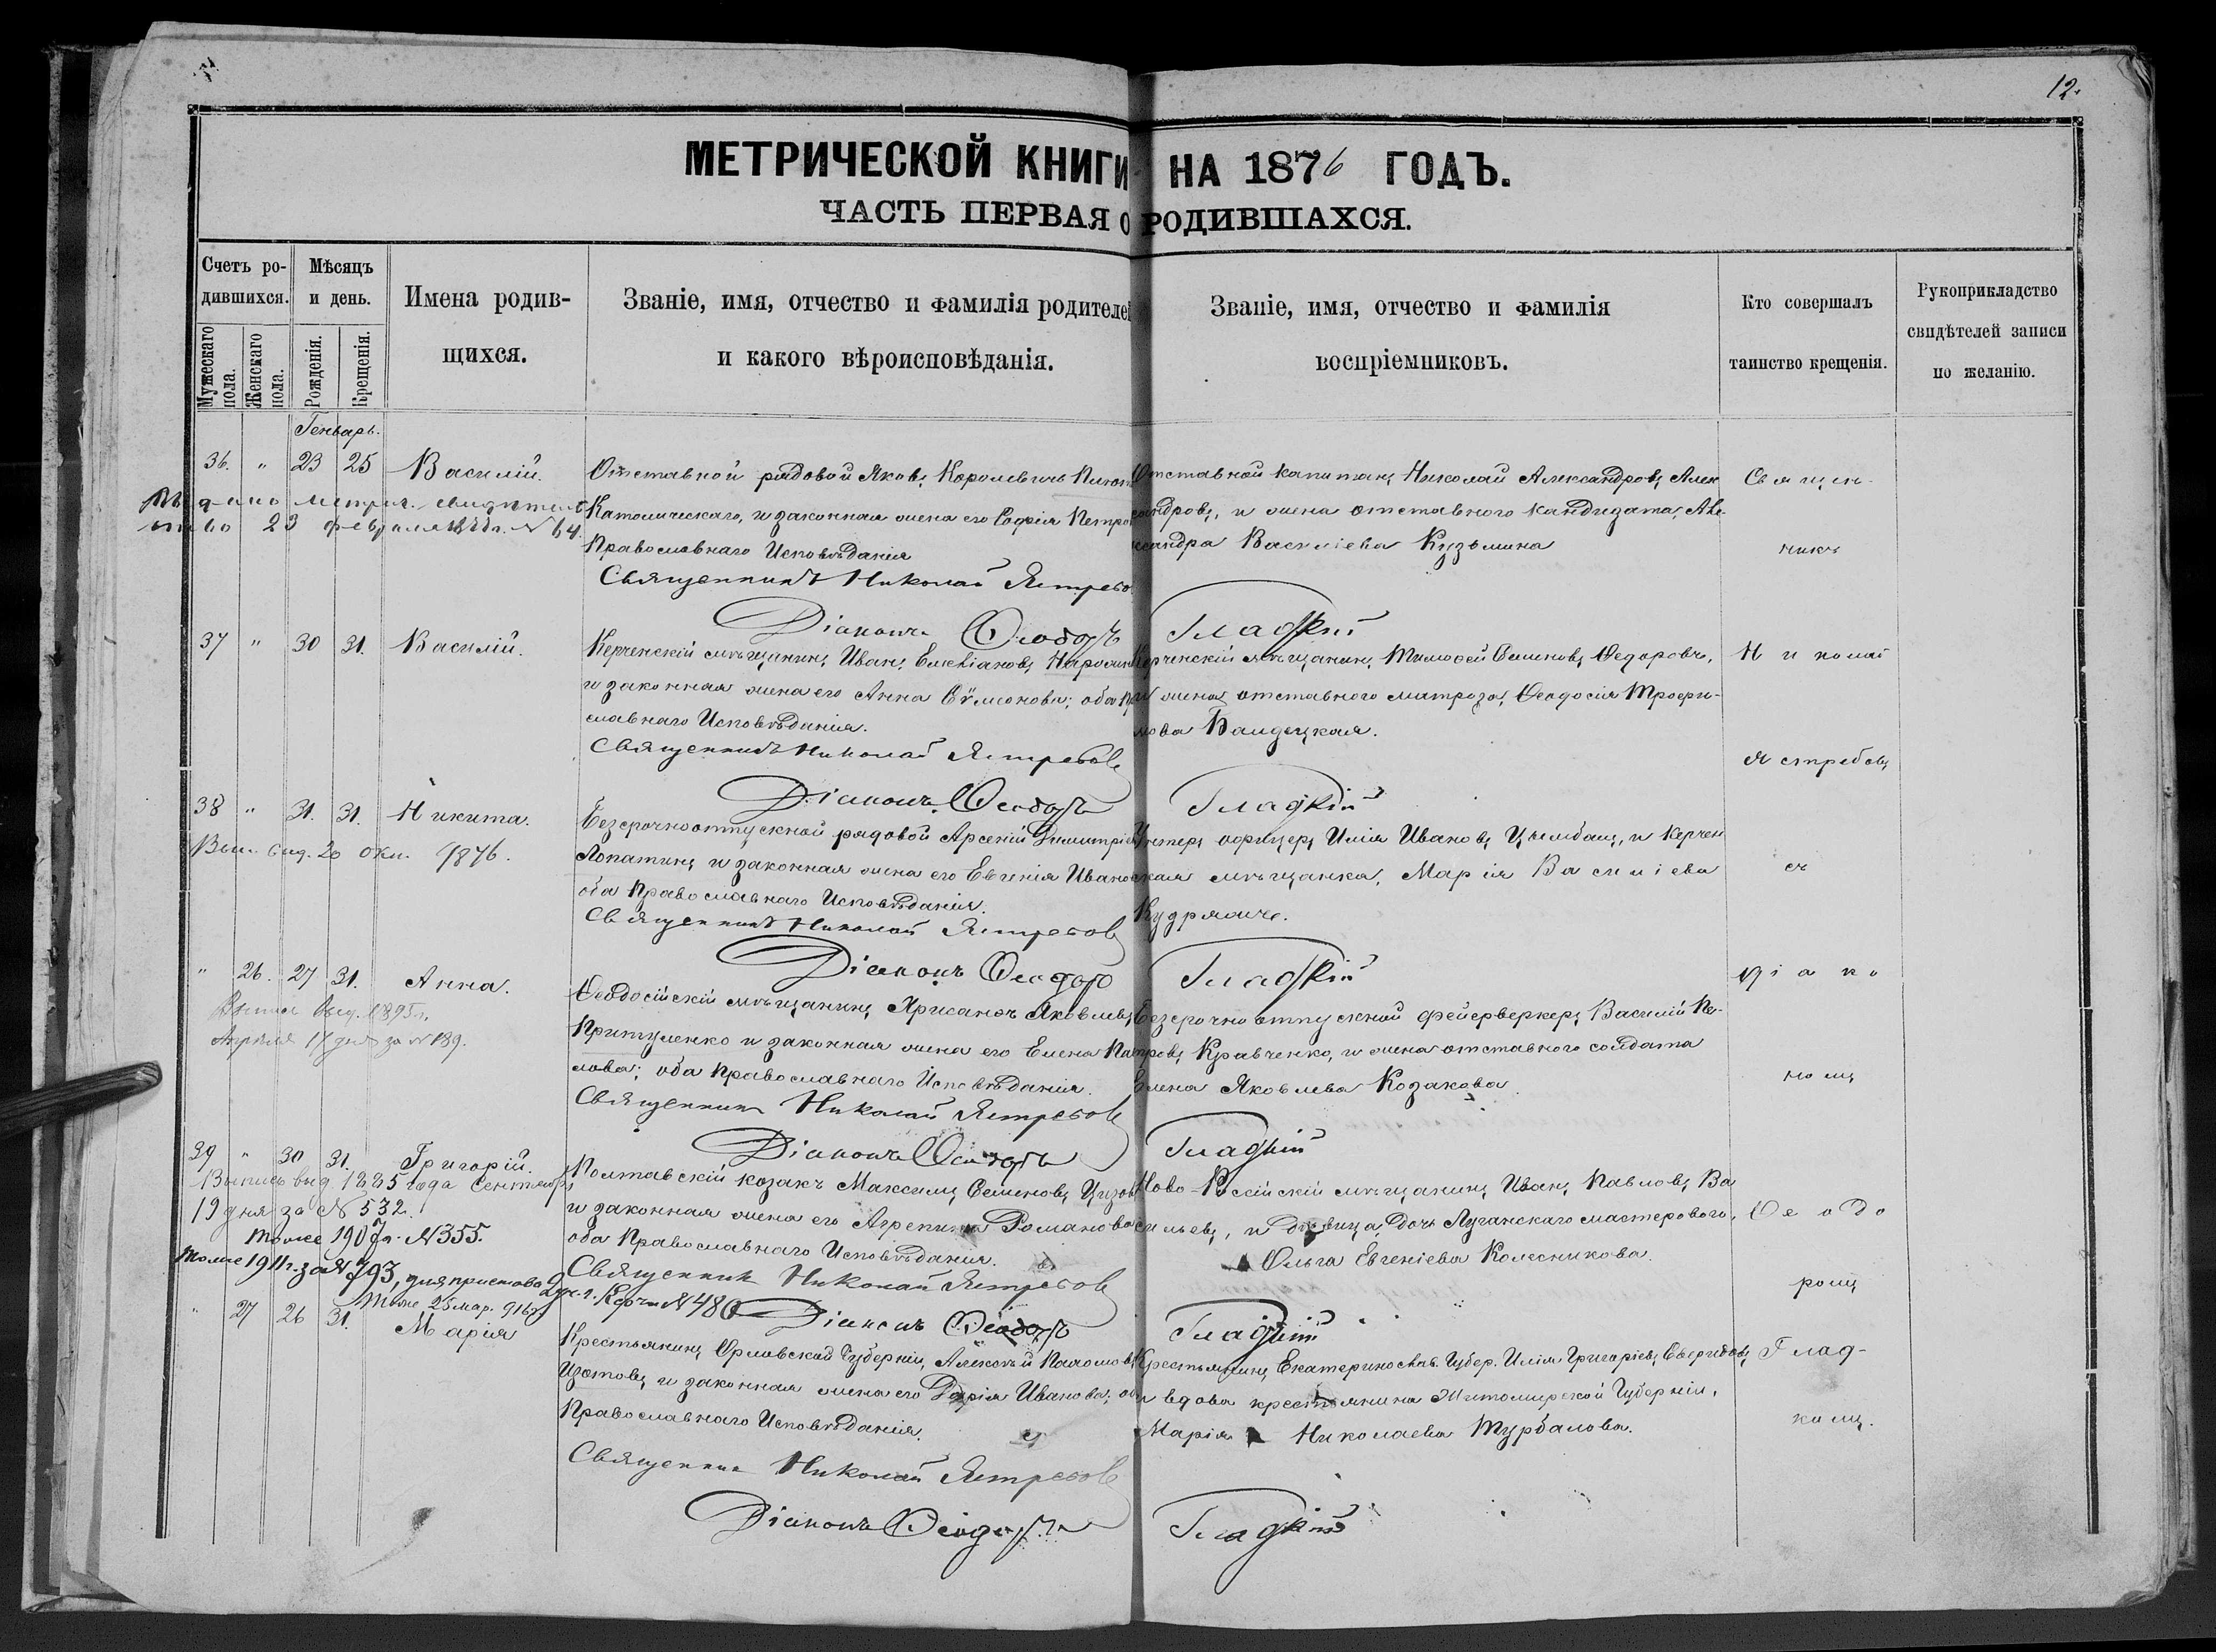 12.
МЕТРИЧЕСКОЙ КНИГИ НА 1876 ГОДЪ.
ЧАСТЬ ПЕРВАЯ О РОДИВШАХСЯ.
Счетъ ро-
дившихся.
Мужескаго пола.
Женскаго пола.
Мѣсяцъ
и день.
Рожденія.
Крещенія.
Имена родив-
щихся.
Званіе, имя, отчество и фамилія родителей
и какого вѣроисповѣданія.
Званіе, имя, отчество и фамилія
воспріемниковъ.
Кто совершалъ
таинство крещенія.
Рукоприкладство
свидѣтелей записи
по желанію.
Генварь.
36. " 23 25 Василій.
Выдано метрич. свидѣтель
ство 23 февраля № 64.
Отставной рядовой Яковъ Королевичъ
Католическаго, и законная жена его Софія Петро
Православнаго Исповѣданія
Священникъ Николай Ястребо
Діаконъ Ѳеодоръ Гладкій
Отставной капитанъ Николай Александровъ Алек
сандровъ, и жена отставного кандидата, Але-
ксандра Васильева Кузьмина
37 " 30 31. Василій.
Керченскій мѣщанинъ Иванъ Емельяновъ
и законная жена его Анна Сѵмеонова; оба Пра
славнаго Исповѣданія.
Священникъ Николай Ястребовъ
Діаконъ Ѳеодоръ Гладкій
Керченскій мѣщанинъ Тимоѳей Семеновъ Ѳедоровъ,
и жена отставного матроза, Ѳеодосія Трофи-
мова
38 " 31. 31. Никита.
Вып. выд. 20 окт. 1876.
Безсрочноотпускной рядовой Арсеній Димитріевъ
Лопатинъ и законная жена его Евгенія Ивано
оба Православнаго Исповѣданія.
Священникъ Николай Ястребовъ
Діаконъ Ѳеодоръ Гладкій
Унтеръ офицеръ Илія Ивановъ Цымбалъ, и Керчен
ская мѣщанка, Марія Василіева
" 26. 27 31. Анна.
Выпись выд. 1895 г.
Апрѣля 17 дня за № 189.
Ѳеодосійскій мѣщанинъ Хрисанѳъ Яковлевъ
Притуленко и законная жена его Елена Па
лова; оба Православнаго Исповѣданія.
Священникъ Николай Ястребовъ
Діаконъ Ѳеодоръ Гладкій
Безсрочноотпускной фейерверкеръ Василій Пе-
тровъ Кравченко, и жена отставного солдата
Елена Яковлева Козакова
39 " 30 31. Григорій.
Выпись выд 1885 года Сентября
19 дня за № 532.
тоже 1907 г. № 355.
Тоже 1911 г. за № 793, для пристава 2 уч. г. Керчи № 480
Тоже 25 мар. 916
Полтавскій козакъ Максимъ Семеновъ
и законная жена его Агрепина Романова
оба Православнаго Исповѣданія.
Священникъ Николай Ястребовъ
Діаконъ Ѳеодоръ Гладкій
Ново-Россійскій мѣщанинъ Иванъ Павловъ Ва
сильевъ, и дѣвица, дочь Луганскаго мастерового,
Ольга Евгеніева Колесникова.
" 27 26 31. Марія
Крестьянинъ Орловской Губерніи, Алексѣй
Изотовъ, и законная жена его Дарія Иванова; оба
Православнаго Исповѣданія.
Священникъ Николай Ястребовъ
Діаконъ Ѳеодоръ Гладкій
Крестьянинъ Екатеринослав. Губер. Илія Григоріевъ
и вдова крестьянина Житомирской Губерніи,
Марія Николаева Турбалова.
Священ-
никъ
Николай
Ястребовъ
съ
Діако
номъ
Ѳеодо
ромъ
Глад-
кимъ.